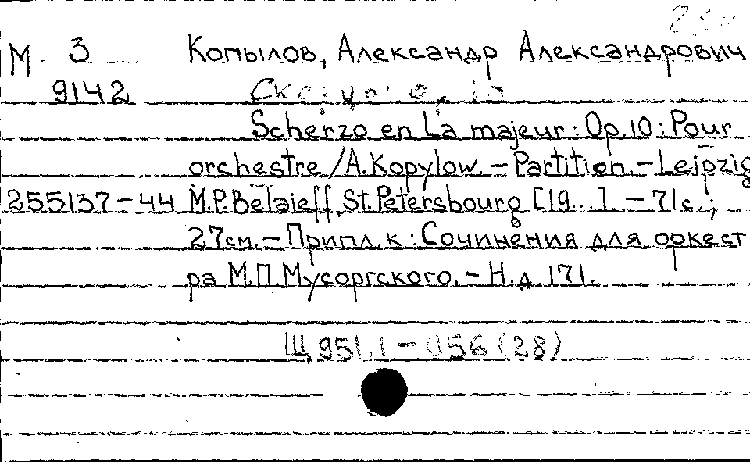 М 3 Копылов, Александр Александрович
9142
Scherzo en La majeur : Op. 10 : Pour
orchestre / A. Kopylow. – Partition. – Leipzig
255137-44 M.P. Belaieff, St. Petersbourg [19...]. – 71 с. ;
27 см. – Припл. к : Сочинения для оркест
ра М.П. Мусоргского. – Н. д. 171.
Щ 951.1 – 056 (28)